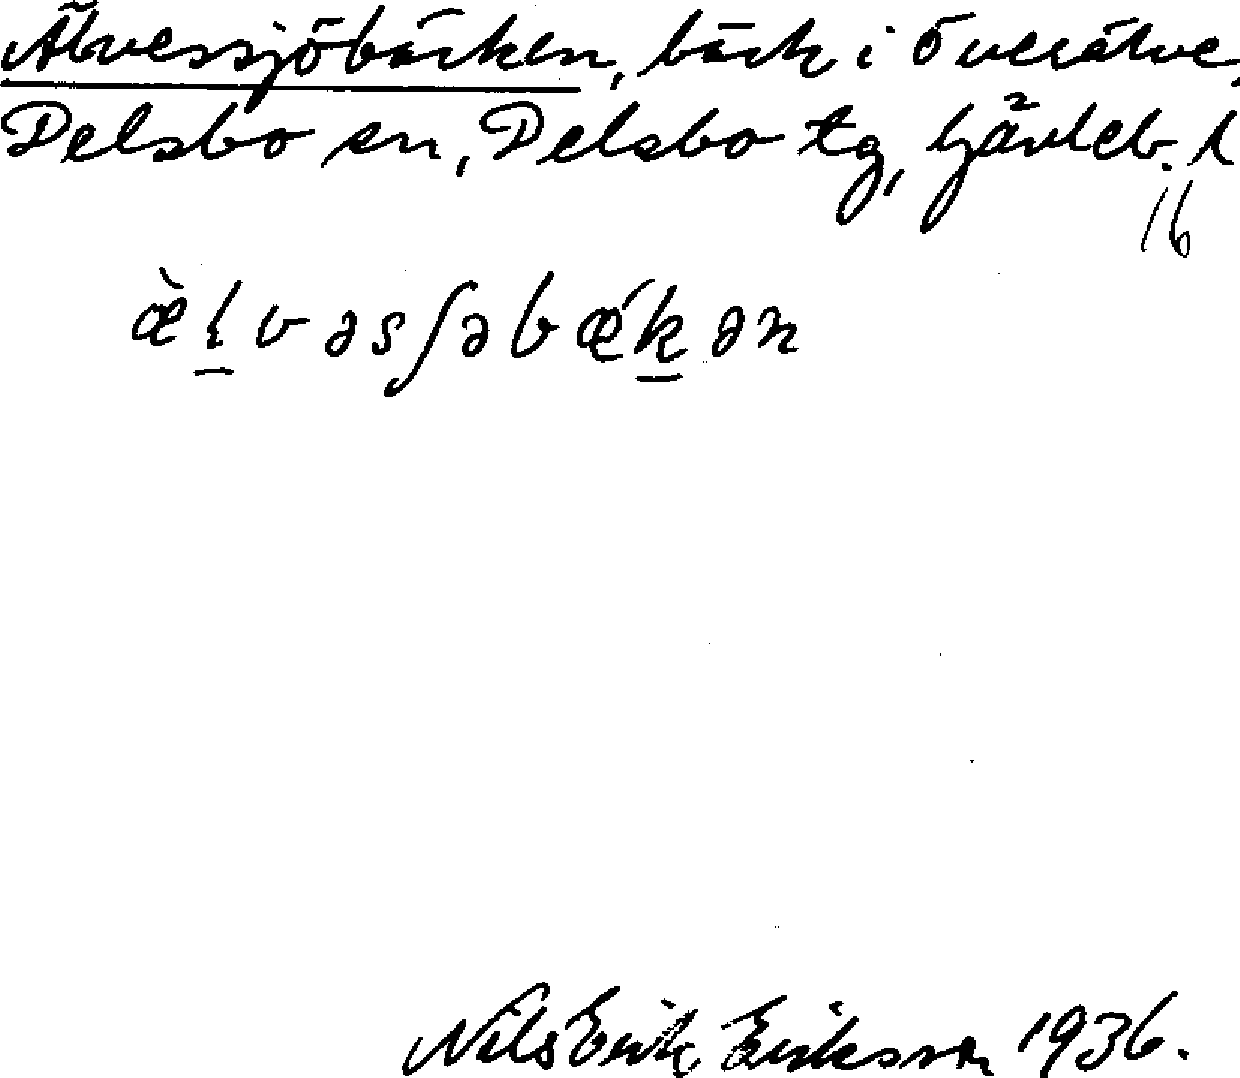 Älvessjöbäcken, bäck i Överälve,
Delsbo sn, Delsbo tg, Gävleb. l
16
æ̀ḷvəsʃəbǽkən
Nils Erik Eriksson 1936.